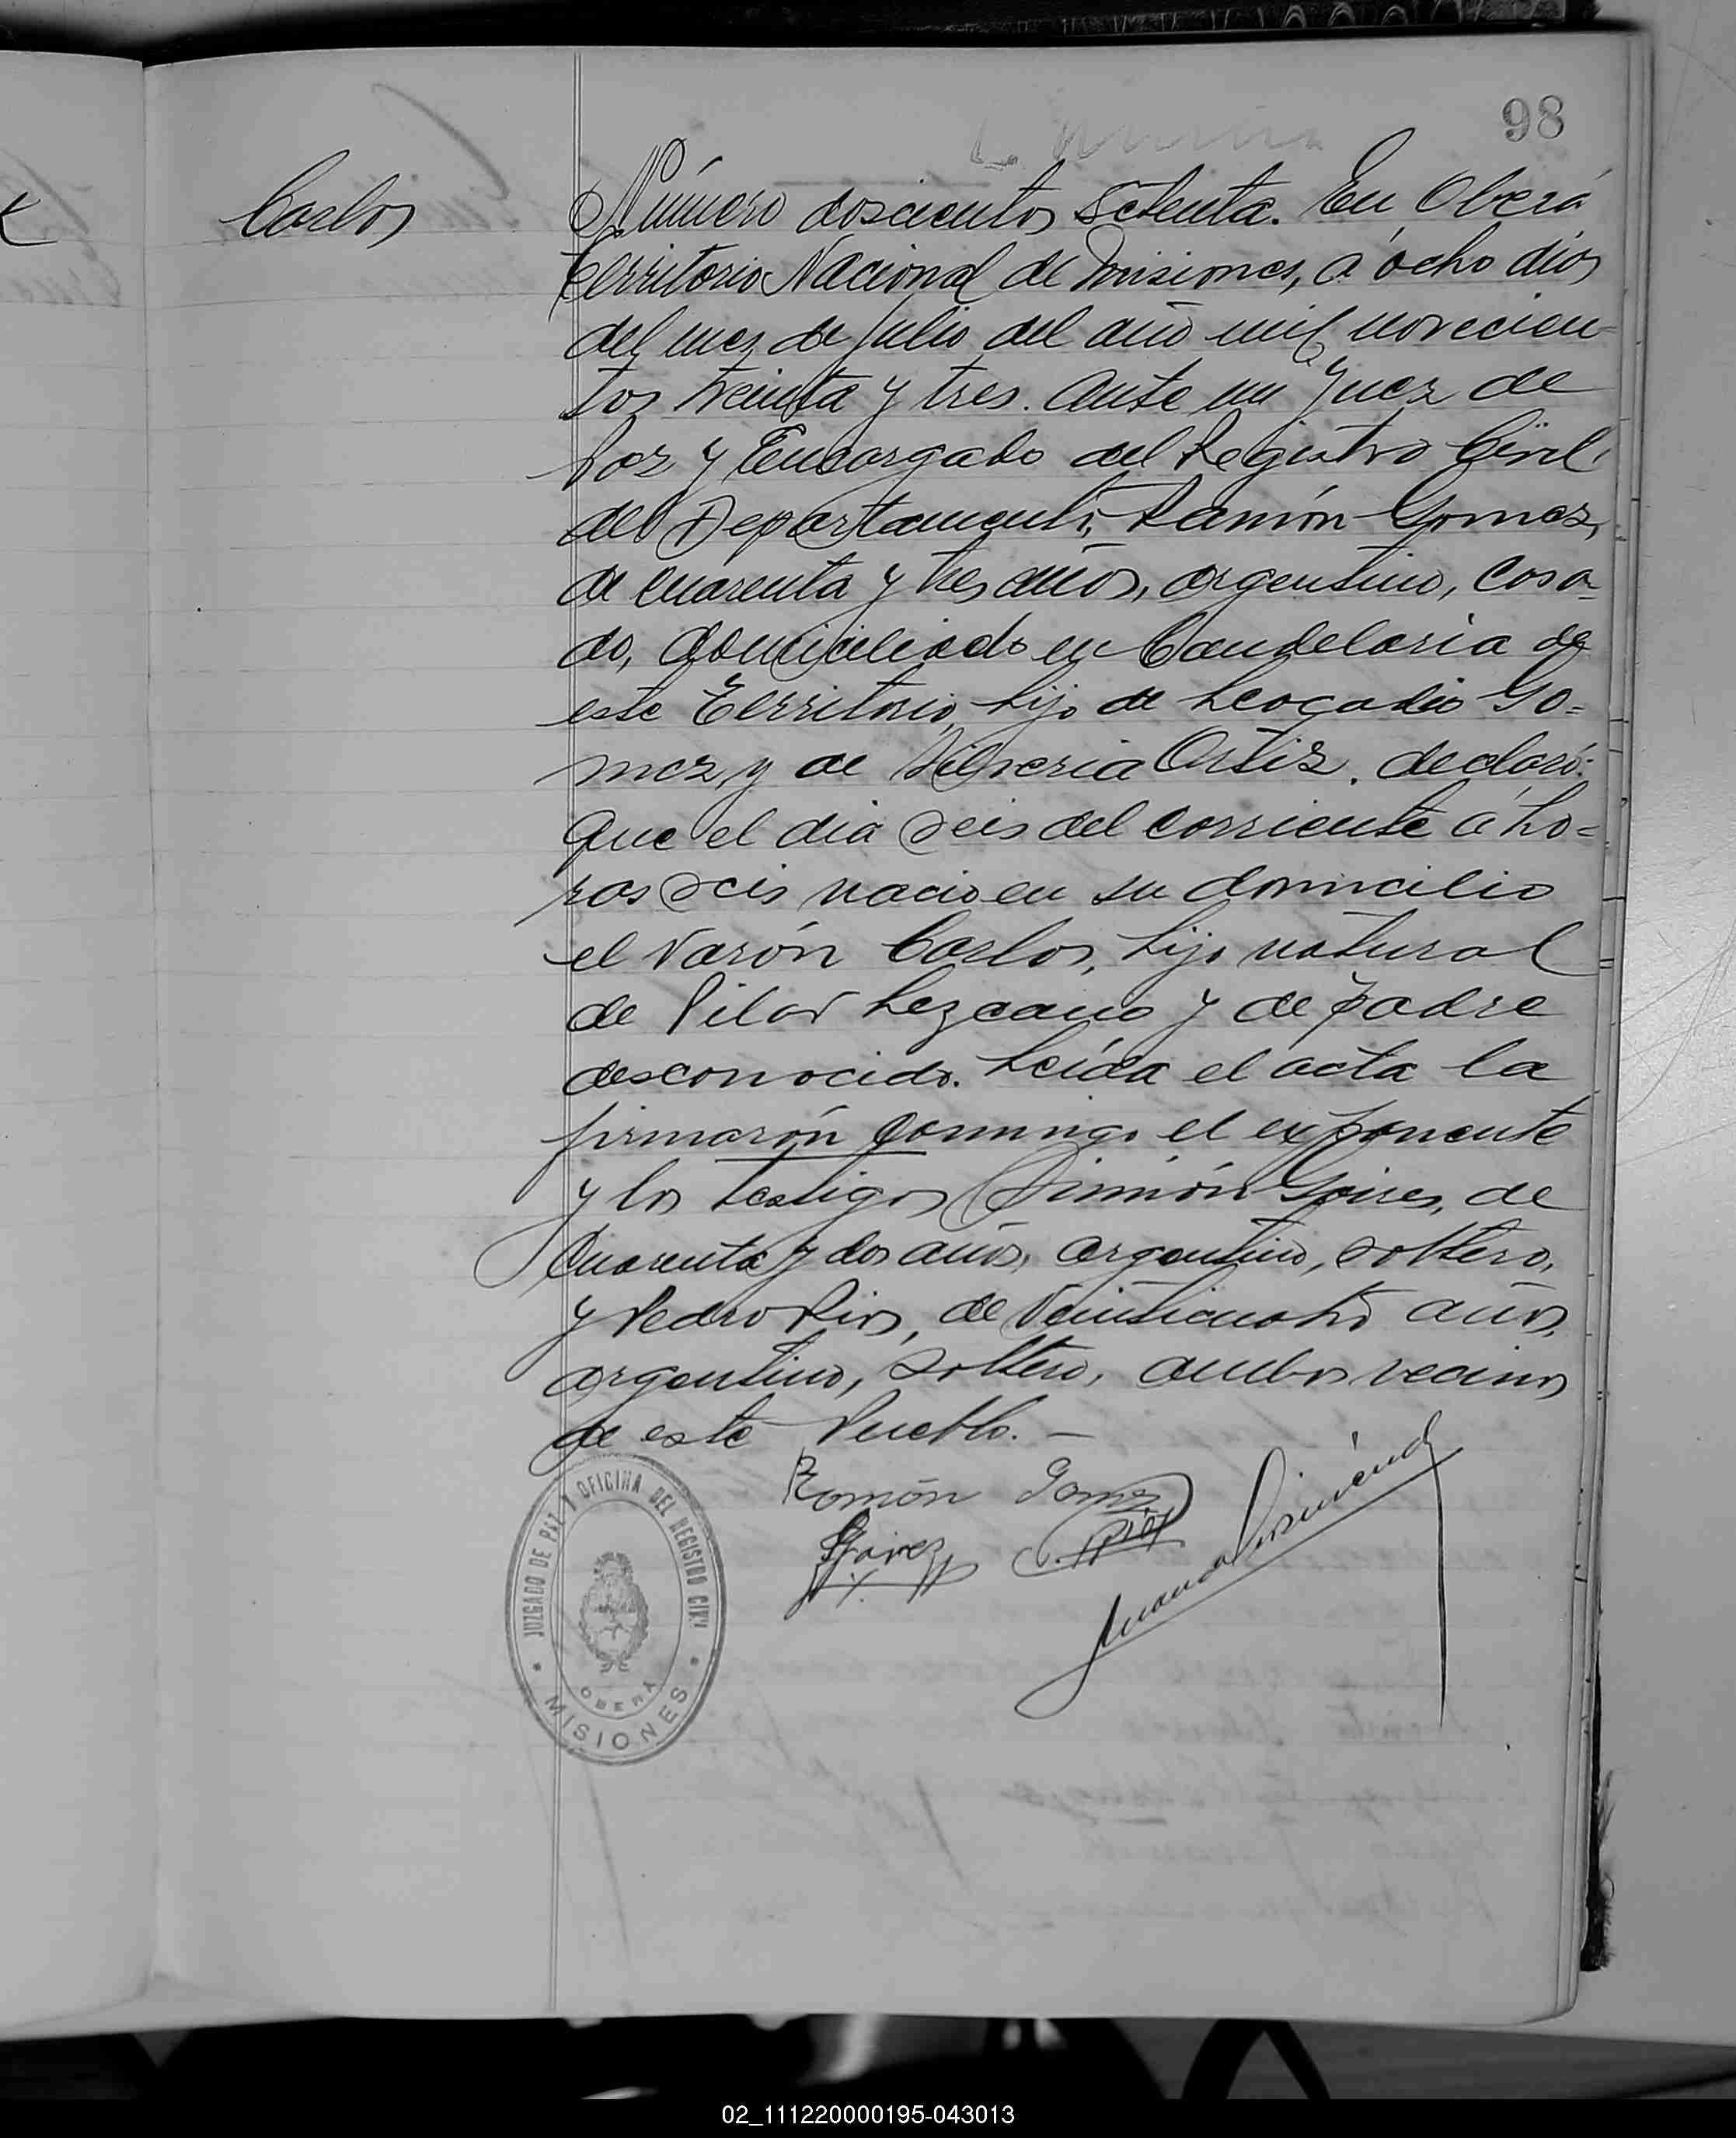 98
Carlos
Número doscientos setenta. En Oberá
territorio Nacional de Misiones, á ocho dias
del mes de Julio del año mil novecien-
tos treinta y tres. Ante mi Juez de
Paz y Encargado del Registro Civil
del Departamento, Ramón Gomez,
de cuarenta y tres años, argentino, casa-
do, domiciliado en Candelaria de
este Territorio, hijo de Leocadio Go=
mez, y de Silveria Ortiz, declaró:
Que el dia seis del corriente á ho=
ras seis nacio en su domicilio
el varón Carlos, hijo natural
de Pilar Lezcano y de padre
desconocido. Leída el acta la
firmarón conmigo el exponente
y los testigos Simión Goires, de
cuarenta y dos años, argentino, soltero,
y Pedro Rios, de veinticuatro años,
argentino, soltero, ambos vecinos
de este Pueblo. —
Román Gomez
JUZGADO DE PAZ Y OFICINA DEL REGISTRO CIVIL
OBERÁ
MISIONES
02_111220000195-043013